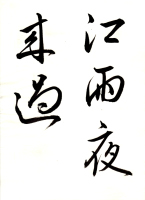 江雨夜
来過